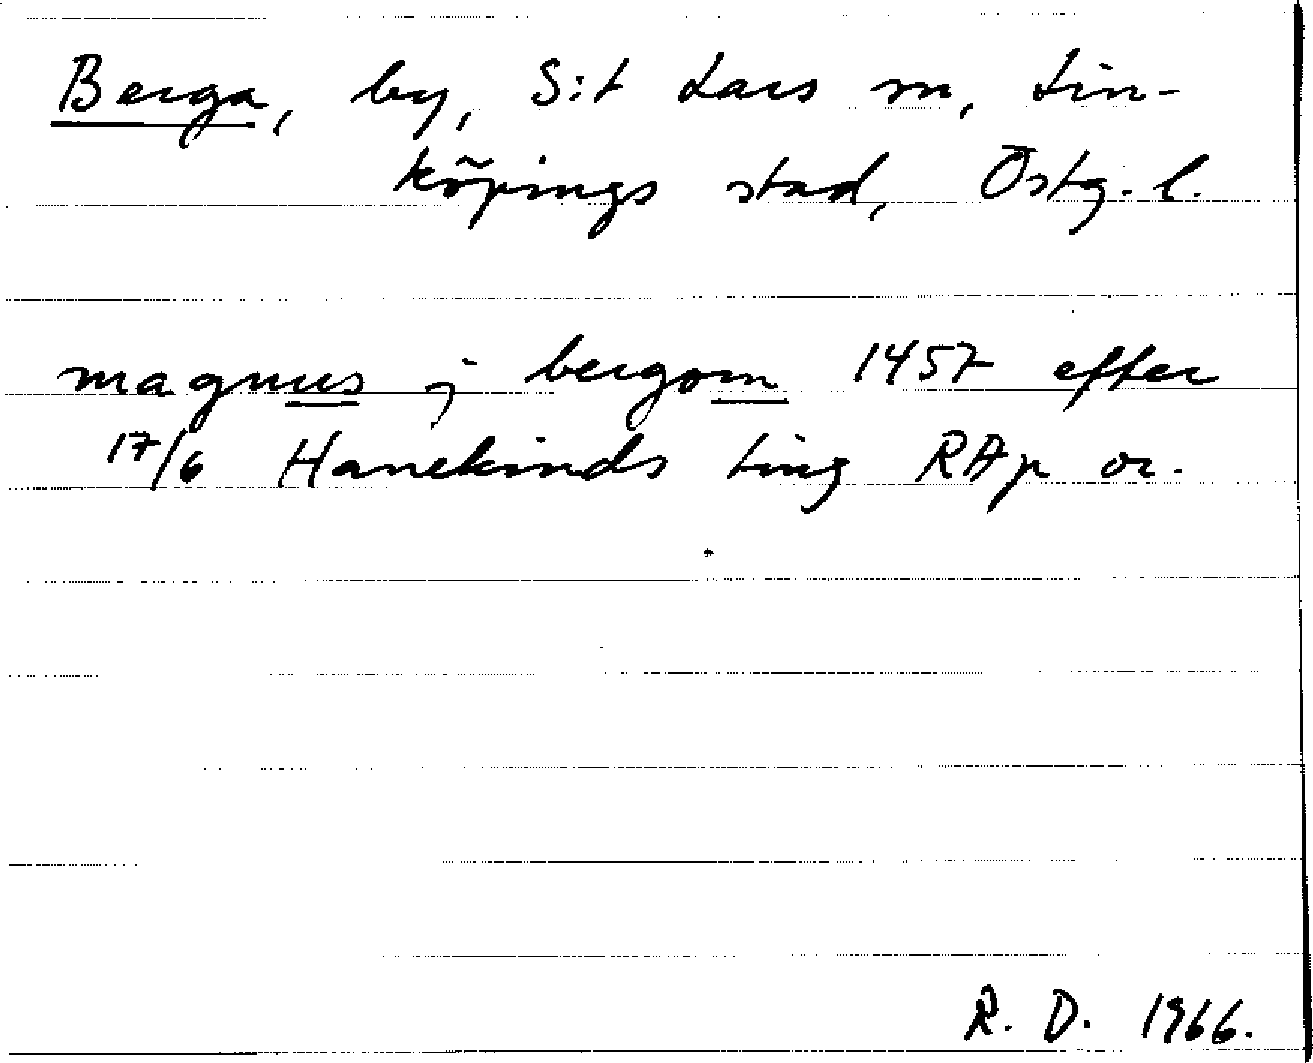 Berga, by, S:t Lars sn, Lin-
köpings stad, Östg. l.
magnus j bergom 1457 efter
17/6 Hanekinds ting RAp or.
R. D. 1966.